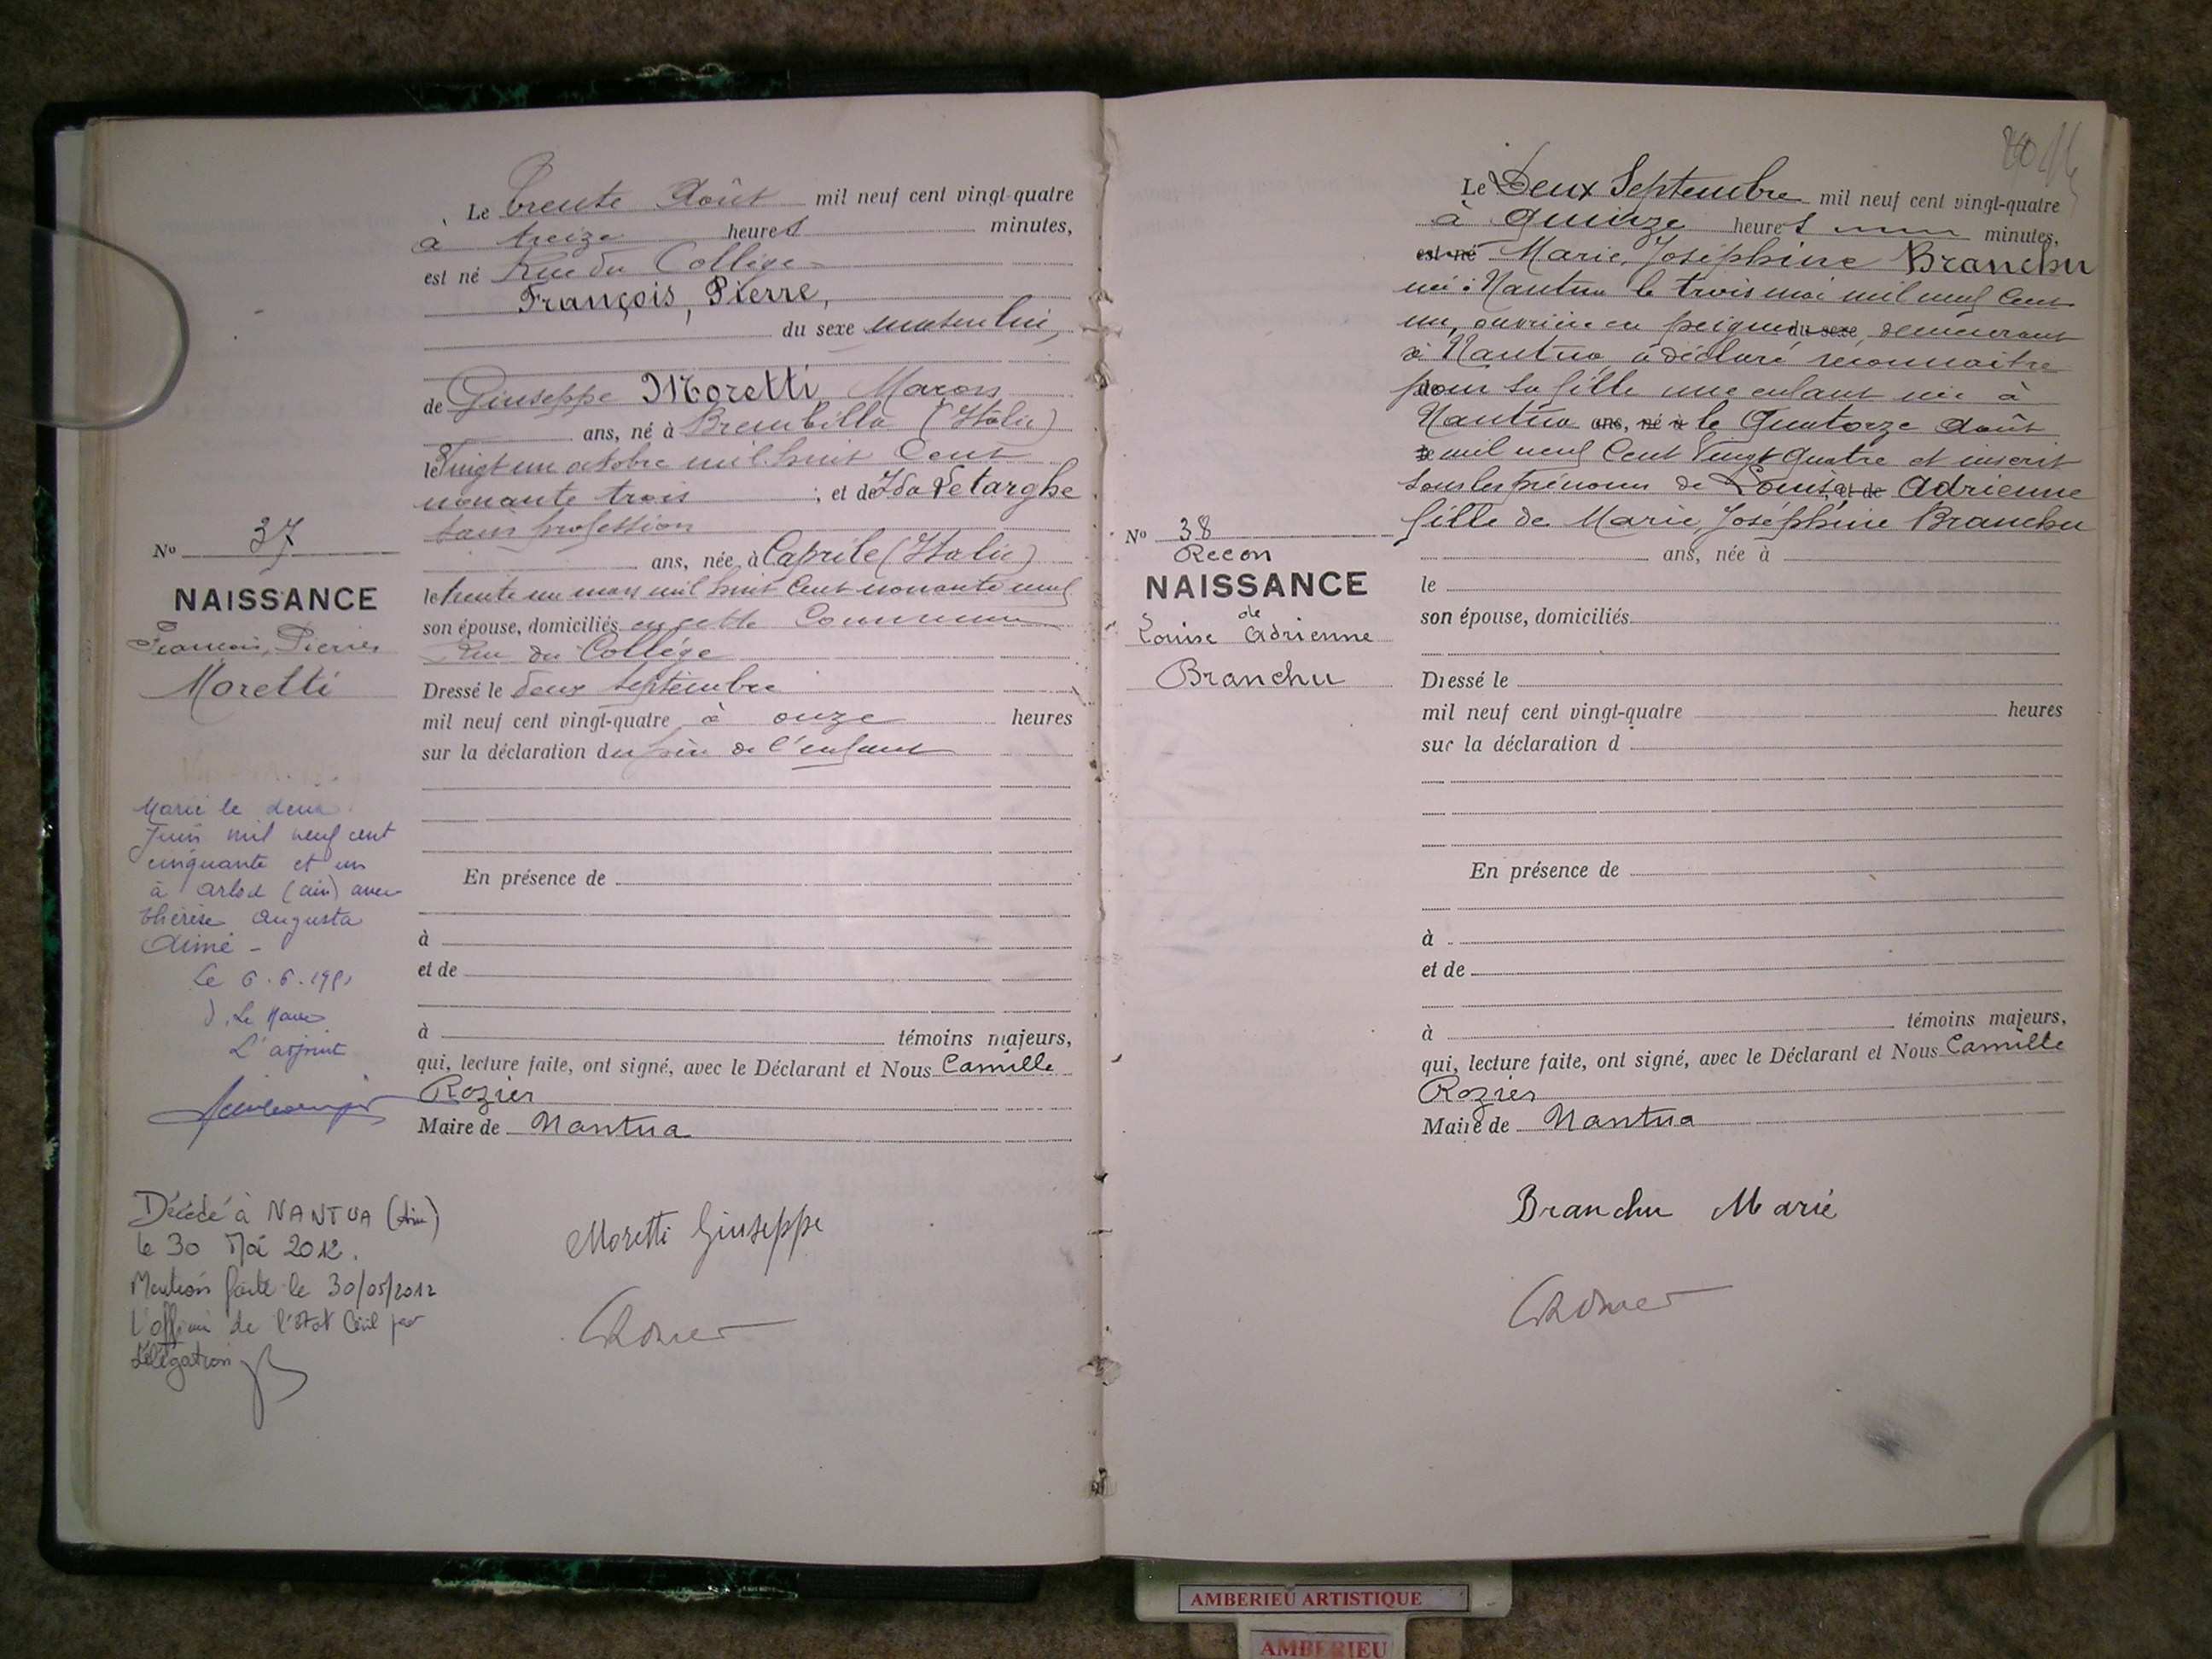 Le trente Août mil neuf cent vingt-quatre
à treize heures minutes,
est né Rue du Collège
François, Pierre,
du sexe masculin,
de Giuseppe Moretti Maçon
ans, né à Brembilla (Italie)
le Vingt un octobre mil huit Cent
nonante trois ; et de Ida Pelarghe
sans profession
ans, née à Caprile (Italie)
le trente un mars mil huit Cent nonante neuf
son épouse, domiciliés en cette Commune
Rue du Collège
Dressé le deux septembre
mil neuf cent vingt-quatre à onze heures
sur la déclaration du père de l'enfant
En présence de
à
et de
à témoins majeurs,
qui, lecture faite, ont signé, avec le Déclarant et Nous Camille
Rozier
Maire de Nantua
Moretti Giuseppe
No 37
NAISSANCE
François, Pierre,
Moretti
Marié le deux
Juin mil neuf cent
cinquante et un
à Arlod (ain) avec
Thérèse Augusta
Aimé -
Le 6.6.1951
Le Maire
L'adjoint
Décédé à NANTUA (Ain)
le 30 Mai 2012.
Mention faite le 30/05/2012
L'officier de l'Etat Civil par
délégation
Le Deux Septembre mil neuf cent vingt-quatre
à quinze heures minutes,
est né Marie, Joséphine Branchu
née à Nantua le trois mai mil neuf Cent
un, ouvrière en peignes du sexe demeurant
à Nantua a déclaré reconnaitre
pour sa fille une enfant née à
Nantua ans, né à le Quatorze Août
le mil neuf Cent Vingt Quatre et inscrit
sous les prénoms de Louise et de Adrienne
fille de Marie Joséphine Branchu
ans, née à
le
son épouse, domiciliés
Dressé le
mil neuf cent vingt-quatre heures
sur la déclaration d
En présence de
à
et de
à témoins majeurs,
qui, lecture faite, ont signé, avec le Déclarant et Nous Camille
Rozier
Maire de Nantua
Branchu Marie
No 38
Recon
NAISSANCE
de
Louise Adrienne
Branchu
AMBERIEU ARTISTIQUE
AMBERIEU